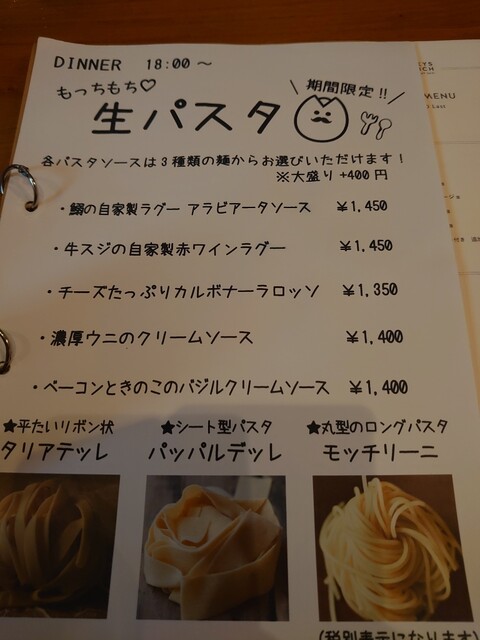 DINNER 18:00～
もっちもち♡
\ 期間限定!! /
生パスタ
各パスタソースは3種類の麺からお選びいただけます!
※大盛り +400円
・鰯の自家製ラグー アラビアータソース ￥1,450
・牛スジの自家製赤ワインラグー ￥1,450
・チーズたっぷりカルボナーラロッソ ￥1,350
・濃厚ウニのクリームソース ￥1,400
・ベーコンときのこのバジルクリームソース ￥1,400
★平たいリボン状
タリアテッレ
★シート型パスタ
パッパルデッレ
★丸型のロングパスタ
モッチリーニ
(税別表示になります)
MENU